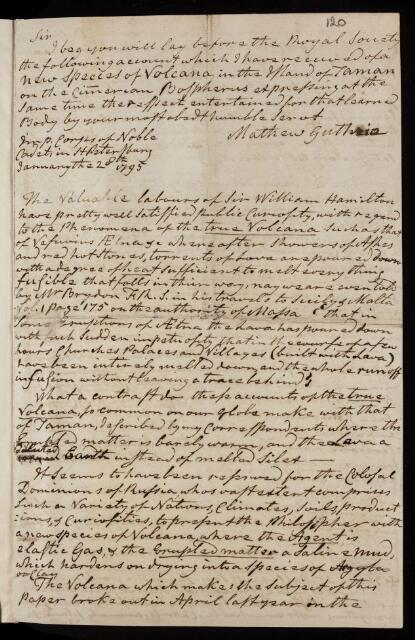 120
Sir
I beg you will lay before the Royal Society
the following account which I have received of a
New Species of Volcana in the Island of Taman
on the Cimerian Bosspherus expressing at the
same time the respect entertained for that learned
Body by your most obedt humble Servt
Mathew Guthrie
Imp. Corps of Noble
Cadets in St Petersburg
January the 28th 1795
The Valuable labours of Sir William Hamilton
have pretty well satisfied public Curiosity, with regard
to the Phenomena of the true Volcana such as that
of Vesuvius Ætna &c where after Showers of Ashes
and red hot Stones, torrents of Lava are poured down
with a degree of heat sufficient to melt every thing
fusible that falls in their way, nay we are even told
by Mr Brydon F.R.S. in his travels to Sicily & Malta
Vol. 1 page 175 on the authority of Massa that in
Some Eruptions of Ætna the lava has poured down
with such sudden impetuosity that in the course of a few
hours Churches Palaces and Villages (built with Lava)
have been entirely melted down and the whole run off
in fusion without leaving a trace behind!
What a contrast do these accounts of the true
Volcana, so common on our globe make with that
of Taman, described by my Correspondents where the
matter is barely warm, and the Lava a
Earth instead of melted Silex
It Seems to have been reserved for the Colosal
Dominions of Russia, whos vast extent comprises
Such a Variety of Nations, Climates, Soils, product
ions, & Curiosities, to present the Philosopher with
a new species of Volcana, where the Agent is
elastic Gas, & the Erupted matter a Saline Mud,
which hardens on drying into a Species of Argyla
or Clay
The Volcana which makes the Subject of this
Paper broke out in April last year in the